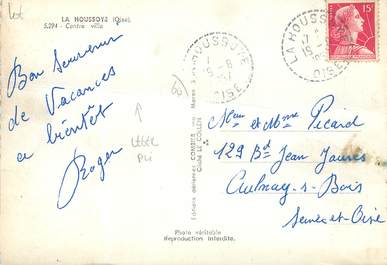 Lot
LA HOUSSOYE (Oise)
5.294 - Centre ville
Bon Souvenir
de Vacances
a bientôt
Roger
LEGER
PLI
Editions aériennes COMBIER Imp. Macon
Cliché LE COLLEN
Photo véritable
Reproduction interdite.
LA HOUSSOYE
OISE
LA HOUSSOYE
OISE
15F
Mr et Mme Picard
129 Bd Jean Jaurès
Aulnay-s-Bois
Seine-et-Oise